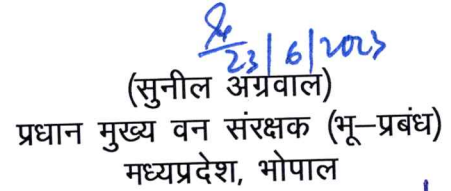 23/6/2023
(सुनील अग्रवाल)
प्रधान मुख्य वन संरक्षक (भू–प्रबंध)
मध्यप्रदेश, भोपाल